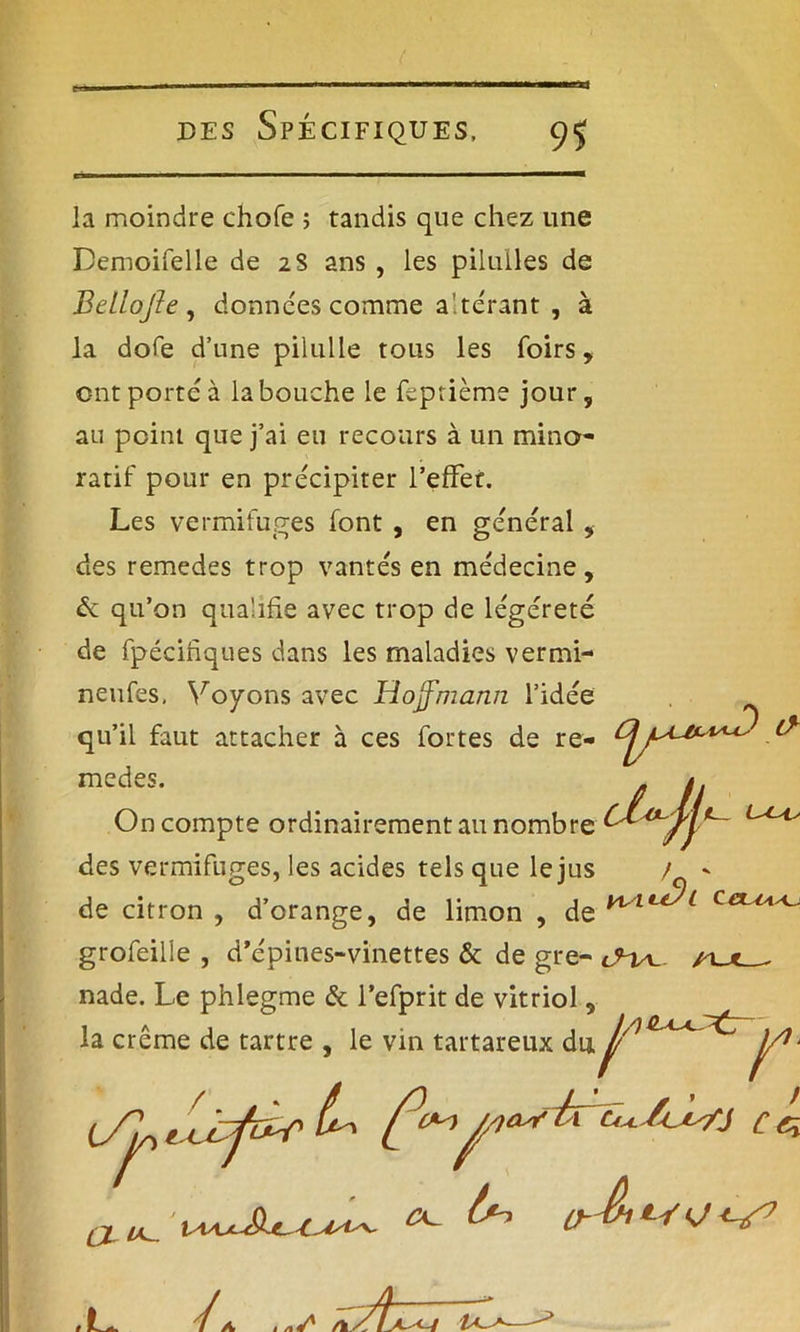 DES SPÉCIFIQUES, 95
la moindre chose ; tandis que chez une
Demoiselle de 28 ans , les pilulles de
Belloste , données comme altérant , à
la dose d'une pilulle tous les soirs ,
ont porté à la bouche le septième jour ,
au point que j'ai eu recours à un mino-
ratif pour en précipiter l'effet.
Les vermifuges sont , en général ,
des remedes trop vantés en médecine ,
& qu'on qualifie avec trop de légéreté
de spécifiques dans les maladies vermi-
neuses. Voyons avec Hoffmann l'idée
qu'il faut attacher à ces sortes de re-
medes.
On compte ordinairement au nombre
des vermifuges, les acides tels que le jus
de citron , d'orange, de limon , de
groseille , d'épines-vinettes & de gre-
nade. Le phlegme & l'esprit de vitriol ,
la crême de tartre , le vin tartareux du
au a